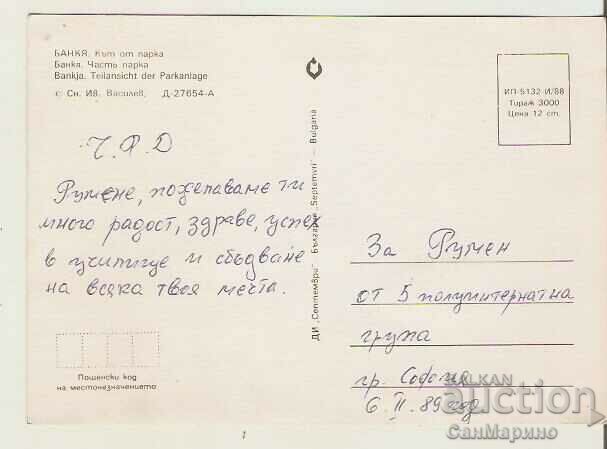 БАНКЯ. Кът от парка
Банкя. Часть парка
Bankja. Teilansicht der Parkanlage
с Сн. Ив. Василев, Д-27654-А
Ч. Р. Д
Румене, пожелаваме ти
много радост, здраве, успех
в училище и сбъдване
на всяка твоя мечта.
Пощенски код
на местоназначението
ДИ „Септември" България „Septemvri" — Bulgaria
ИП-5132-И/88
Тираж 3000
Цена 12 ст.
За Румен
от 5 полуинтернатна
група
гр. София
6. II. 89 год
BALKAN
auction
СанМарино